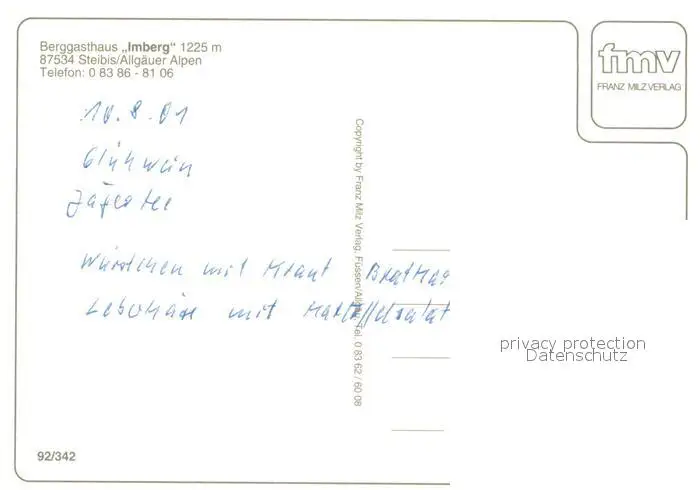 Berggasthaus „Imberg“ 1225 m
87534 Steibis/Allgäuer Alpen
Telefon: 0 83 86 - 81 06
fmv
FRANZ MILZ VERLAG
10.8.01
Glühwein
Jägertee
Würstchen mit Kraut
Leberkäse mit Kartoffelsalat
Copyright by Franz Milz Verlag, Füssen/Allgäu, Tel. 0 83 62 / 60 08
privacy protection
Datenschutz
92/342